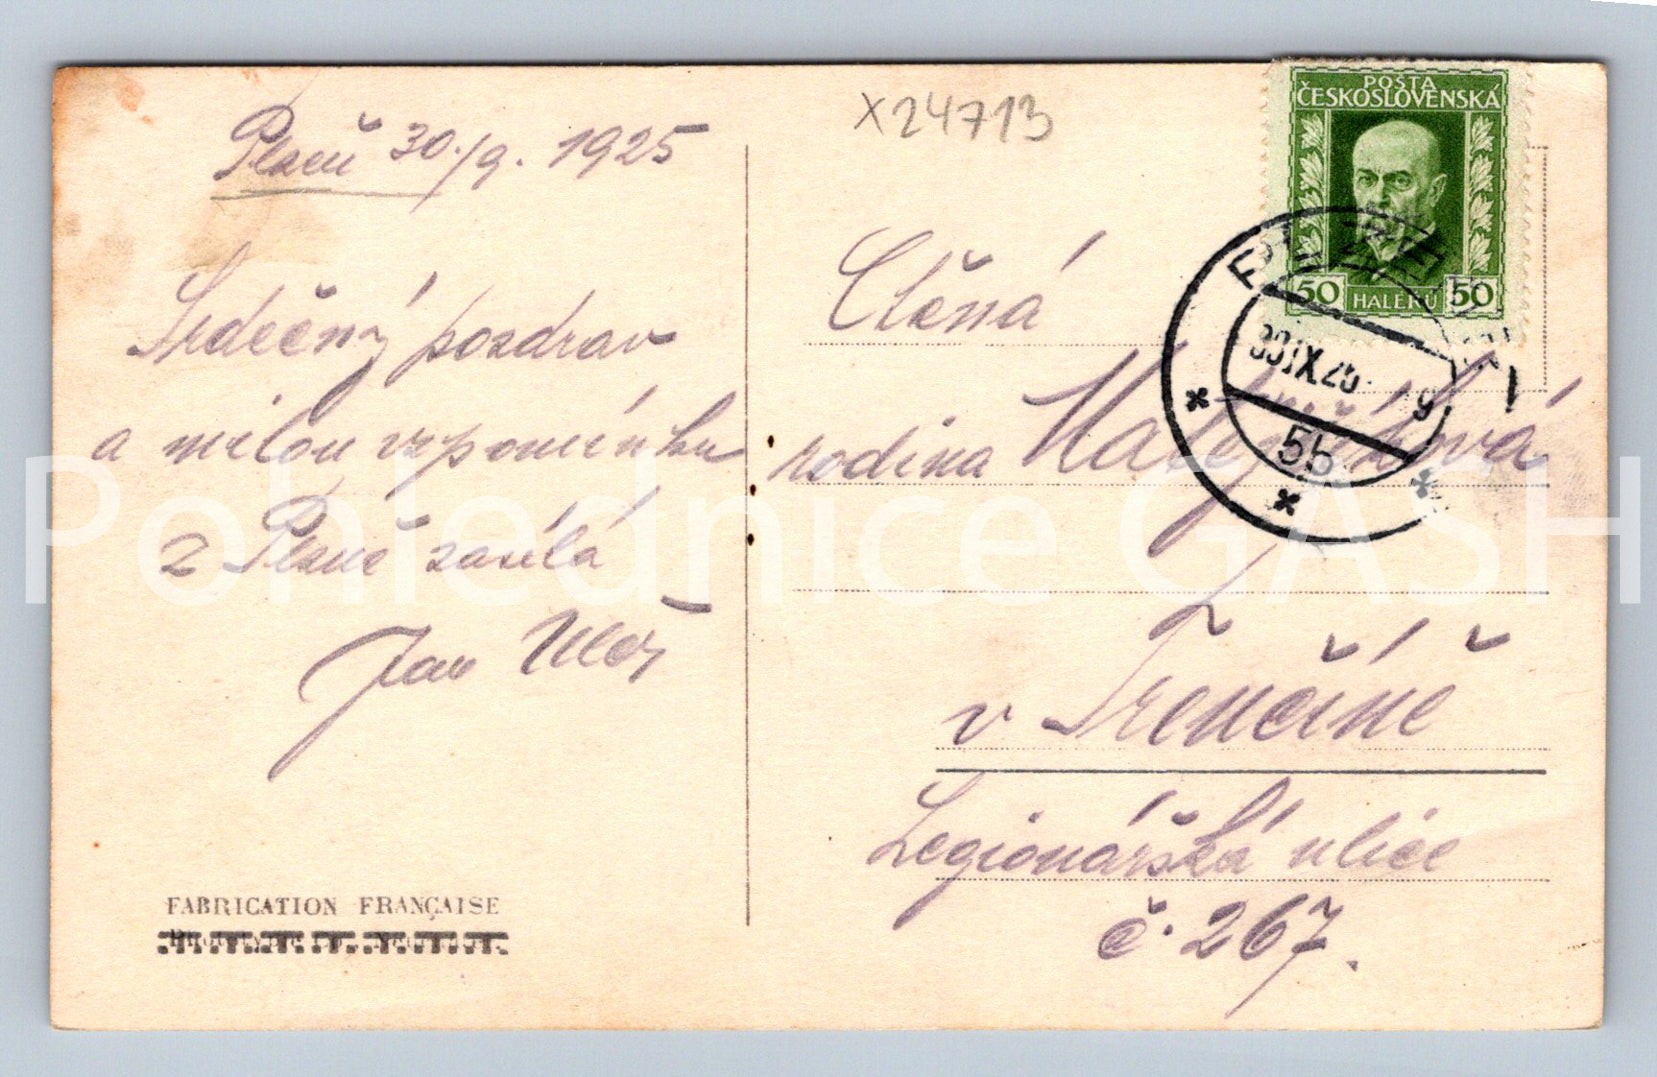 Plzeň 30./9. 1925
Srdečný pozdrav
a milou vzpomínku
z Plzně zasílá
Jan
FABRICATION FRANÇAISE
X24713
POŠTA
ČESKOSLOVENSKÁ
50 HALÉŘŮ 50
PLZEŇ 1
30.IX.25 9
5b
Ctěná
rodina
v Trenčíně
Legionářská ulice
č. 267.
Pohlednice GASH